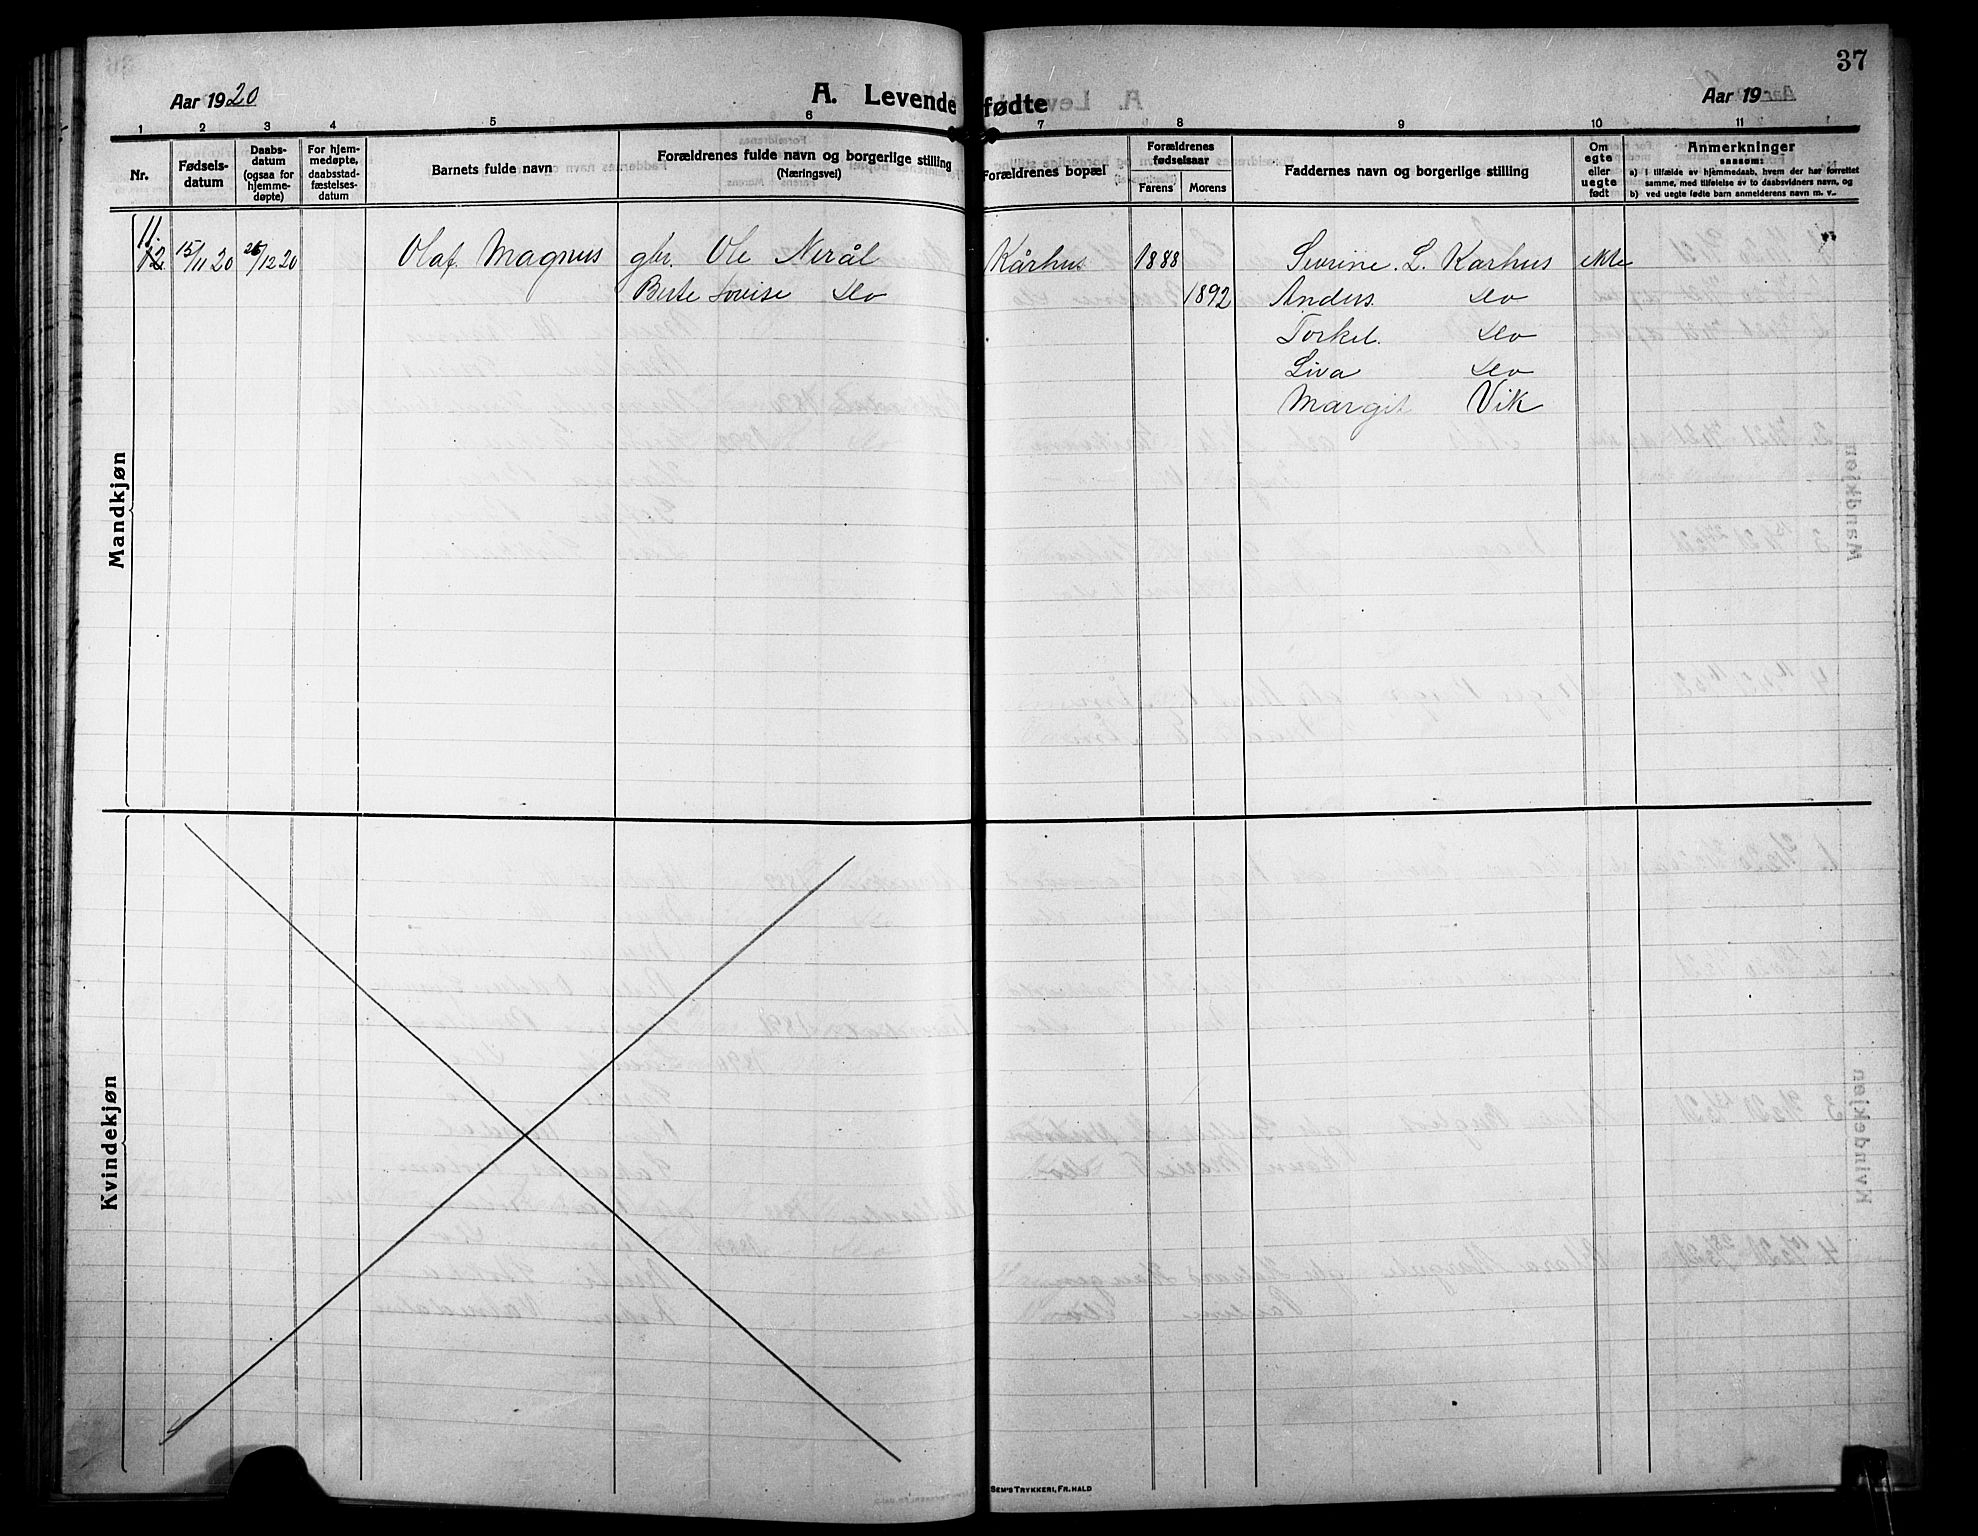 37
Aar 1920
A. Levende fødte
Aar 19
1 2 3 4 5 6 7 8 9 10 11
Nr.
Fødsels-
datum
Daabs-
datum
(ogsaa for
hjemme-
døpte)
For hjem-
medøpte,
daabsstad-
fæstelses-
datum
Barnets fulde navn
Forældrenes fulde navn og borgerlige stilling
(Næringsvei)
Forældrenes bopæl
Forældrenes
fødselsaar
Farens Morens
Faddernes navn og borgerlige stilling
Om
egte
eller
uegte
født
Anmerkninger
saasom:
a) i tilfælde av hjemmedaab, hvem der har forrettet
samme, med tilføielse av to daabsvidners navn, og
b) ved uegte fødte barn anmelderens navn m. v..
Mandkjøn
11.
12 15/11 20 26/12 20 Olaf Magnus gbr. Ole Nerål Kårhus 1888 Sevrine. L. Karhus ekte
Berte Lovise do 1892 Anders. do
Torkel. do
Liva do
Margit Vik
Kvindekjøn
SEM'S TRYKKERI, FR.HALD